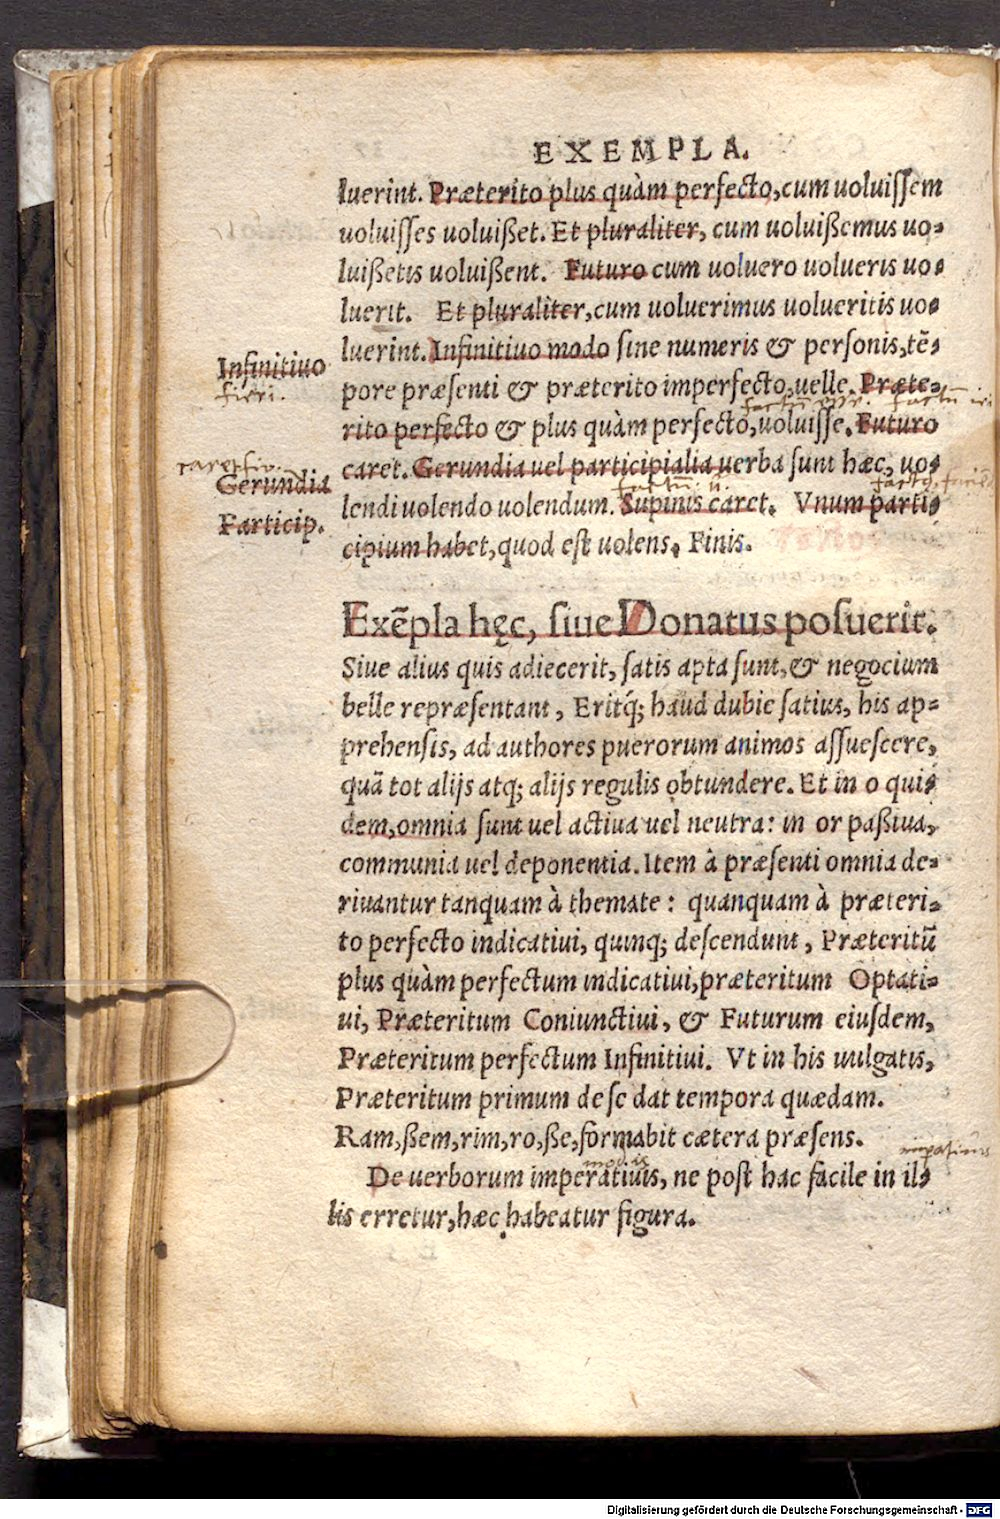 EXEMPLA.
luerint. Præterito plus quàm perfecto, cum uoluiſſem
uoluiſſes uoluißet. Et pluraliter, cum uoluißemus uo-
luißetis uoluißent. Futuro cum uoluero uolueris uo-
luerit. Et pluraliter, cum uoluerimus uolueritis uo-
luerint. Infinitiuo modo ſine numeris & perſonis, tẽ-
Infinitiuo
fieri.
pore præſenti & præterito imperfecto, uelle. Præte-
rito perfecto & plus quàm perfecto, uoluiſſe. Futuro
caret. Gerundia uel participialia uerba ſunt hæc, uo-
Gerundia
lendi uolendo uolendum. Supinis caret. Vnum parti-
Particip.
cipium habet, quod eſt uolens. Finis.
Exẽpla hęc, ſiue Donatus poſuerit.
Siue alius quis adiecerit, ſatis apta ſunt, & negocium
belle repræſentant, Eritq́; haud dubie ſatius, his ap-
prehenſis, ad authores puerorum animos aſſueſcere,
quã tot alijs atq; alijs regulis obtundere. Et in o qui-
dem, omnia ſunt uel actiua uel neutra: in or paßiua,
communia uel deponentia. Item à præſenti omnia de-
riuantur tanquam à themate: quanquam à præteri-
to perfecto indicatiui, quinq; deſcendunt, Præteritũ
plus quàm perfectum indicatiui, præteritum Optati-
ui, Præteritum Coniunctiui, & Futurum eiuſdem,
Præteritum perfectum Infinitiui. Vt in his uulgatis,
Præteritum primum de ſe dat tempora quædam.
Ram, ßem, rim, ro, ße, formabit cætera præſens.
De uerborum imperatiuis, ne poſt hac facile in il-
lis erretur, hæc habeatur figura.
Digitalisierung gefördert durch die Deutsche Forschungsgemeinschaft - DFG